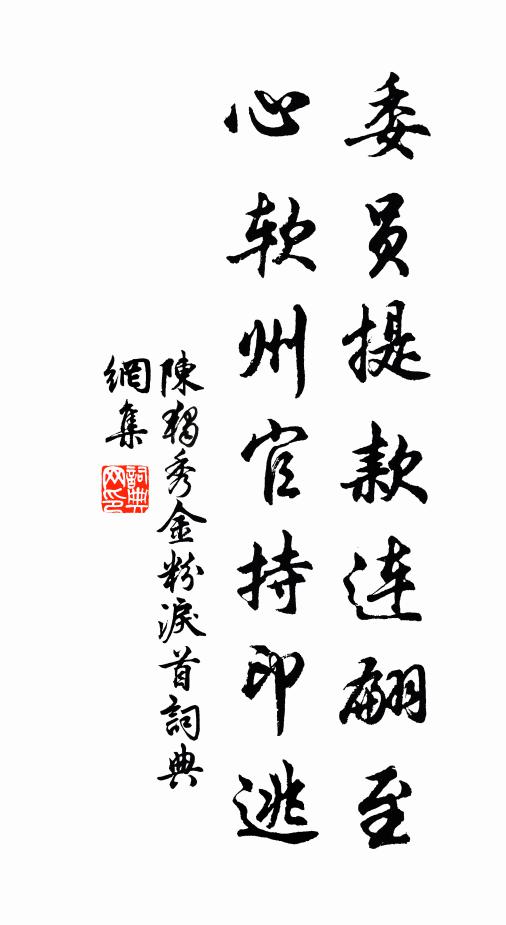 委员提款连翩至
心软州官持印逃
陳独秀金粉淚首詞典
網集
詞典
网印